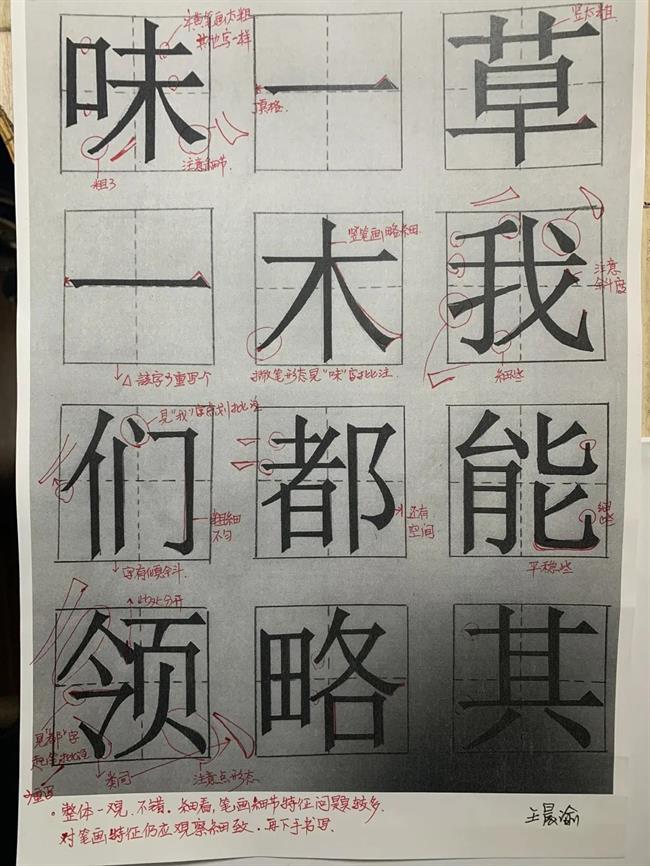 味 一 草
横笔画太粗
其他字一样
竖太粗
顶格.
粗了
注意细节.
一 木 我
竖笔画略细.
注意
斜度
△ 该字多重写个
撇笔形态见"味"字批注.
细些
们 都 能
见"我"字点划批注
粗细
不匀
还有
空间
细
些
字有倾斜
平稳些
领 略 其
此处分开
见"都"字
起笔批注
类同
注意点形态
重写
。整体一观,不错。细看,笔画细节特征问题较多.
对笔画特征仍应观察细致.再下手书写.
王晟渝